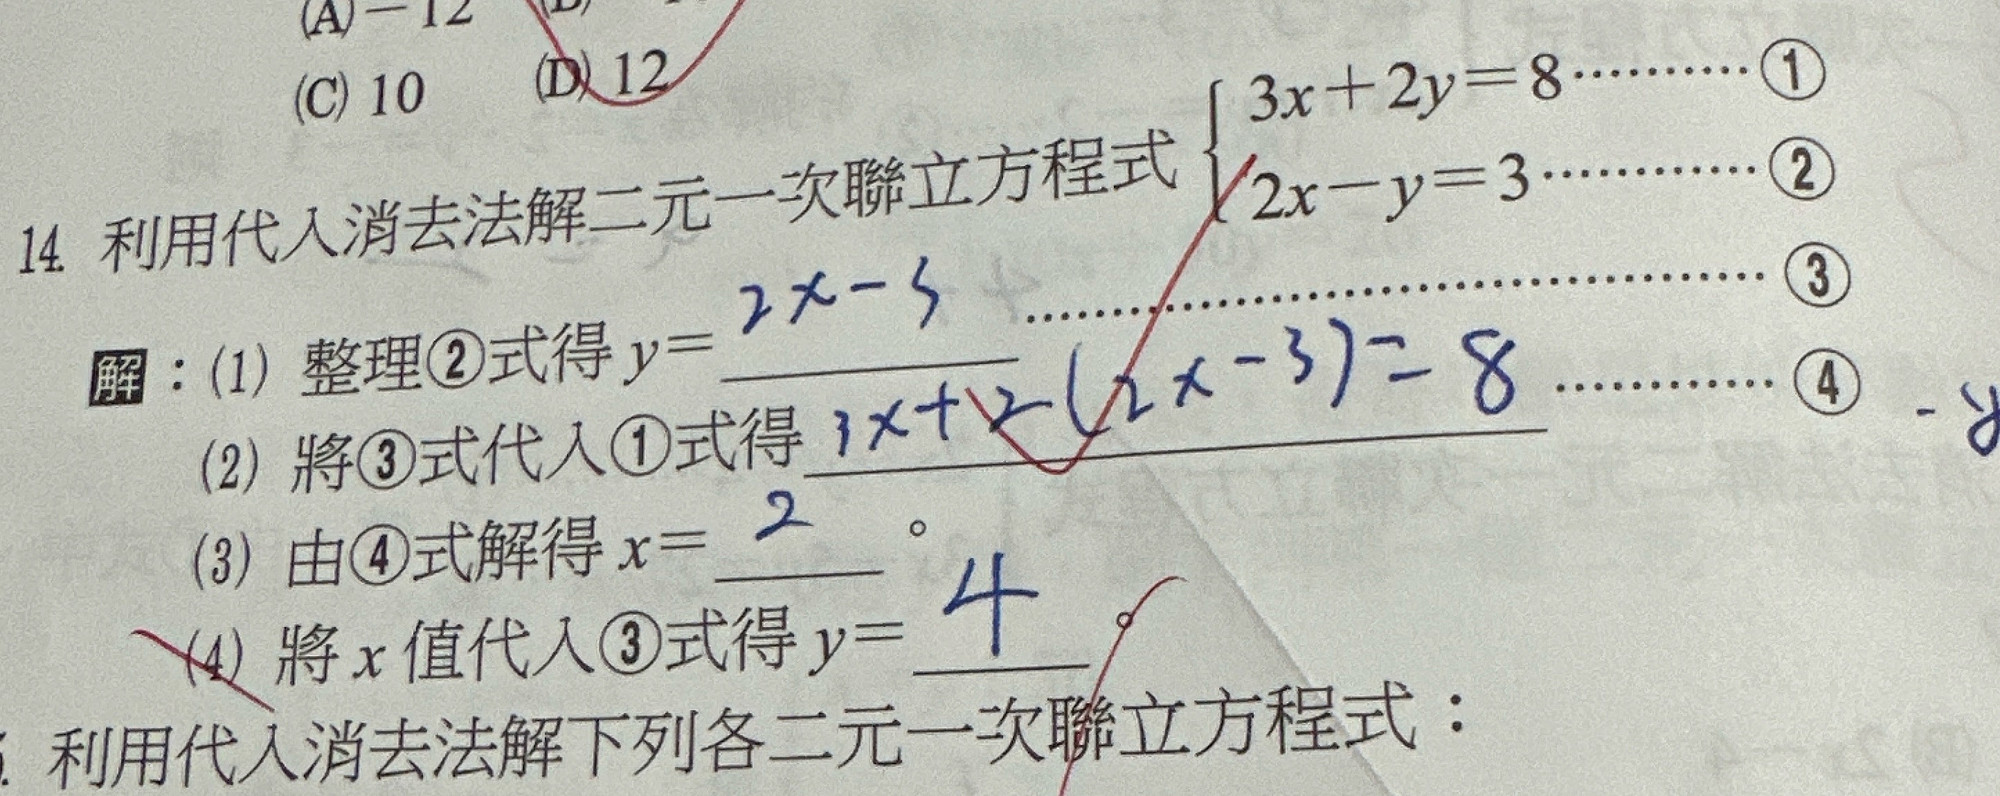 (A) －12
(C) 10 (D) 12
14. 利用代入消去法解二元一次聯立方程式 { 3x＋2y＝8………… ①
2x－y＝3………… ②
解：(1) 整理②式得 y＝ 2x－3 ………… ③
(2) 將③式代入①式得 3x＋2(2x－3)＝8 ………… ④
-y
(3) 由④式解得 x＝ 2 。
(4) 將 x 值代入③式得 y＝ 4 。
利用代入消去法解下列各二元一次聯立方程式：